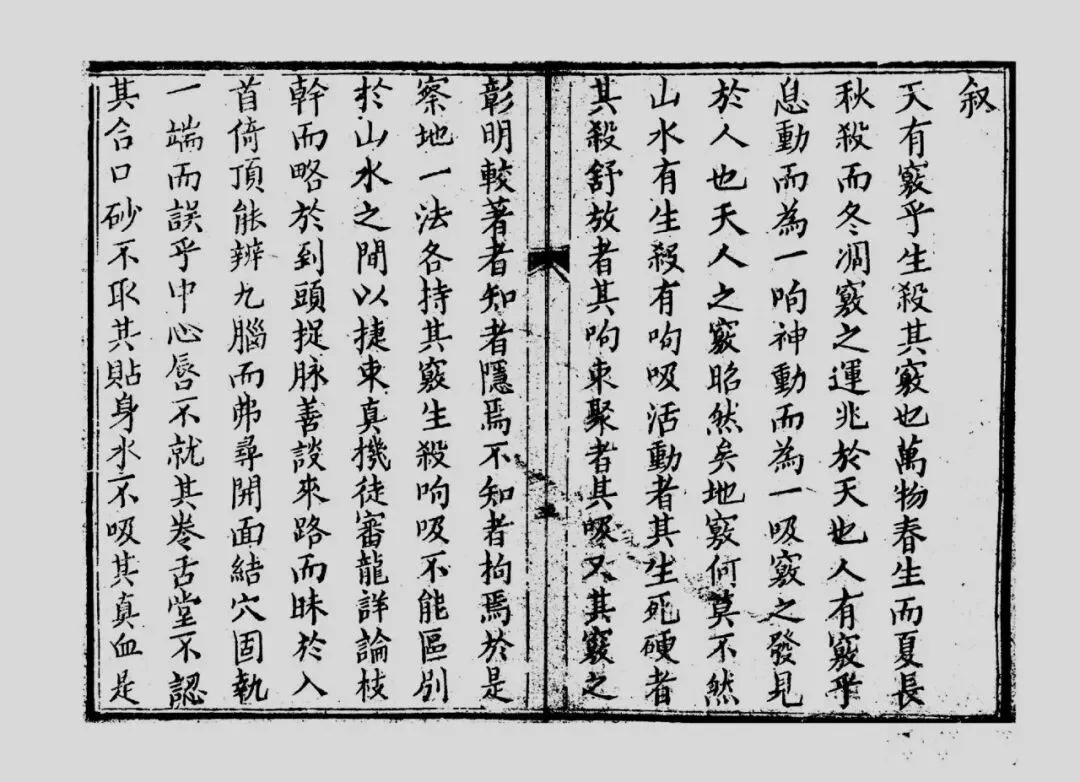 叙
天有竅乎生殺其竅也萬物春生而夏長
秋殺而冬凋竅之運兆於天也人有竅乎
息動而為一呴神動而為一吸竅之發見
於人也天人之竅昭然矣地竅何莫不然
山水有生殺有呴吸活動者其生死硬者
其殺舒放者其呴束聚者其吸又其竅之
彰明較著者知者隱焉不知者拘焉於是
察地一法各持其竅生殺呴吸不能區别
扵山水之間以捷束真機徒審龍詳論枝
幹而略於到頭捉脉善談來路而昧於入
首倚頂能辨九腦而弗尋開面結穴固執
一端而誤乎中心唇不就其卷舌堂不認
其合口砂不取其貼身水不吸其真血是